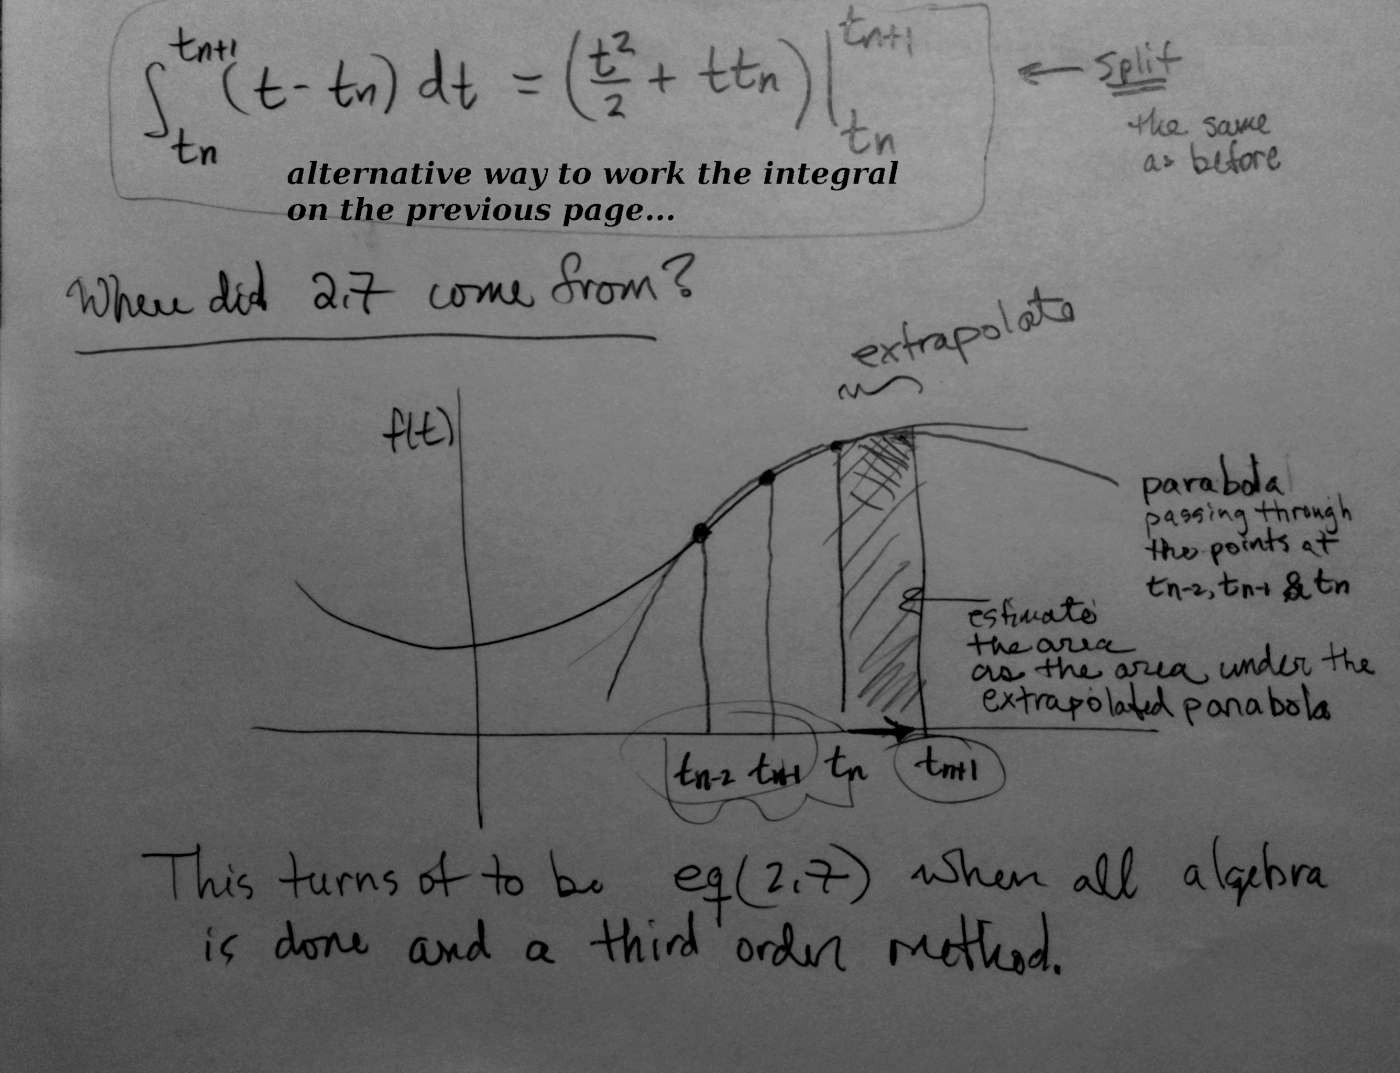 ∫_{tn}^{tn+1} (t - tn) dt = (t²/2 + ttn) |_{tn}^{tn+1} ← split
the same
as before
alternative way to work the integral
on the previous page...
Where did 2.7 come from?
extrapolate
f(t)
parabola
passing through
the points at
tn-2, tn-1 & tn
estimate
the area
as the area under the
extrapolated parabola
tn-2 tn-1 tn tn+1
This turns of to be eq(2.7) when all algebra
is done and a third order method.